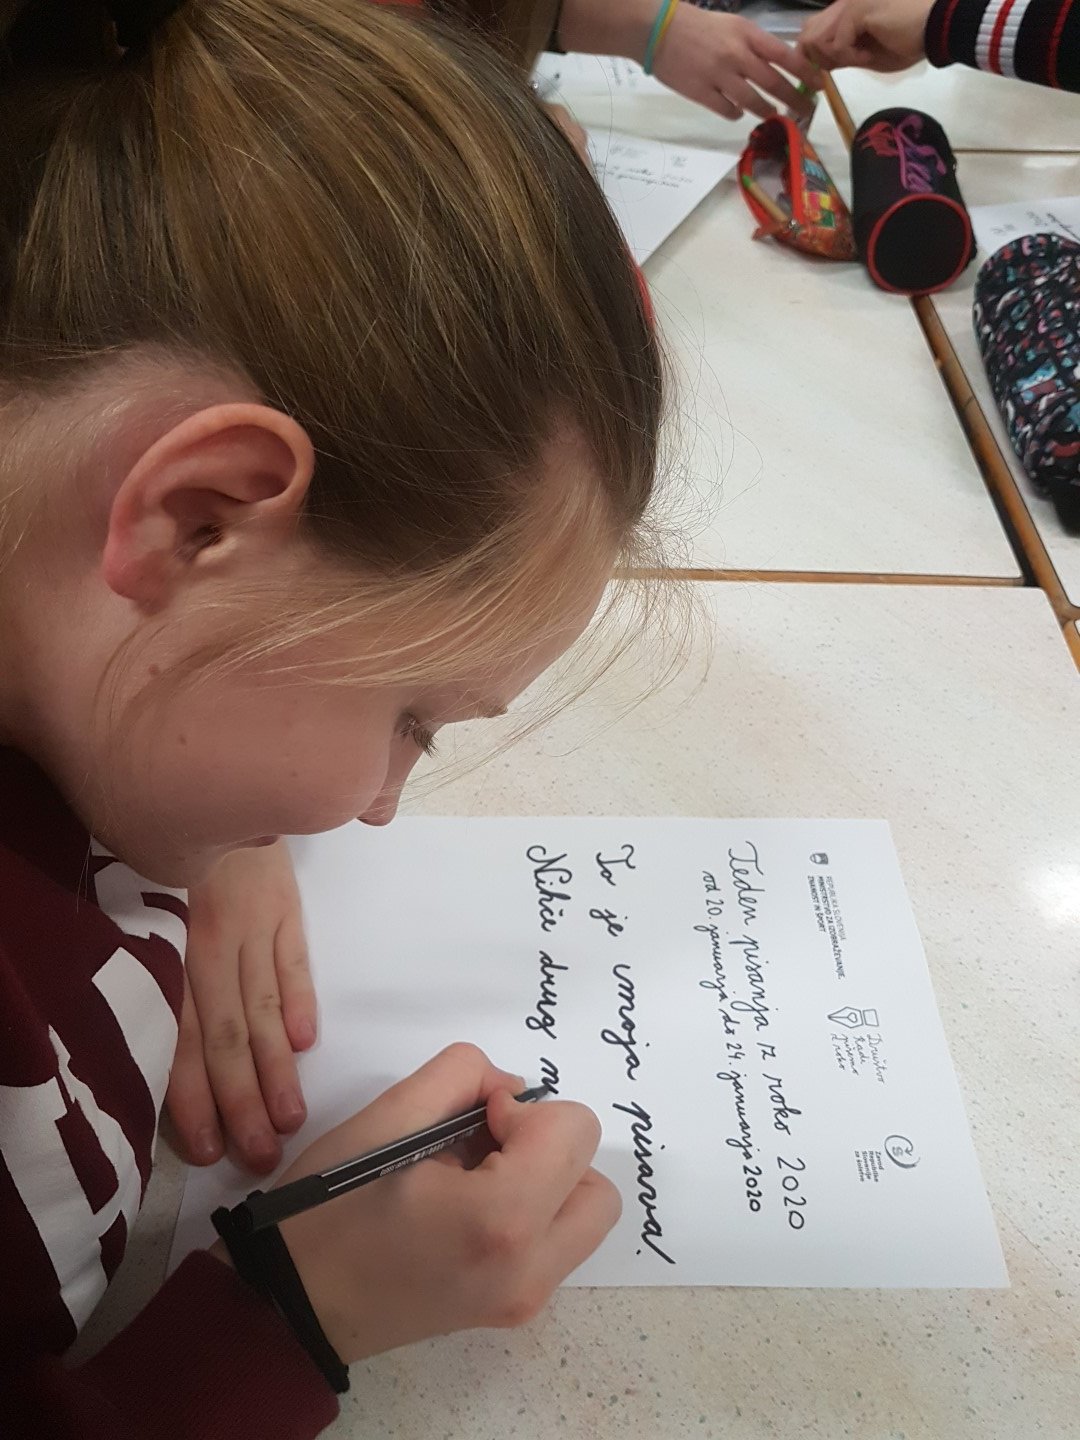 REPUBLIKA SLOVENIJA
MINISTRSTVO ZA IZOBRAŽEVANJE,
ZNANOST IN ŠPORT
Društvo
Radi
pišemo
z roko
Zavod
Republike
Slovenije
za šolstvo
Teden pisanja iz roko 2020
od 20. januarja do 24. januarja 2020
To je moja pisava!
Nihče drug n